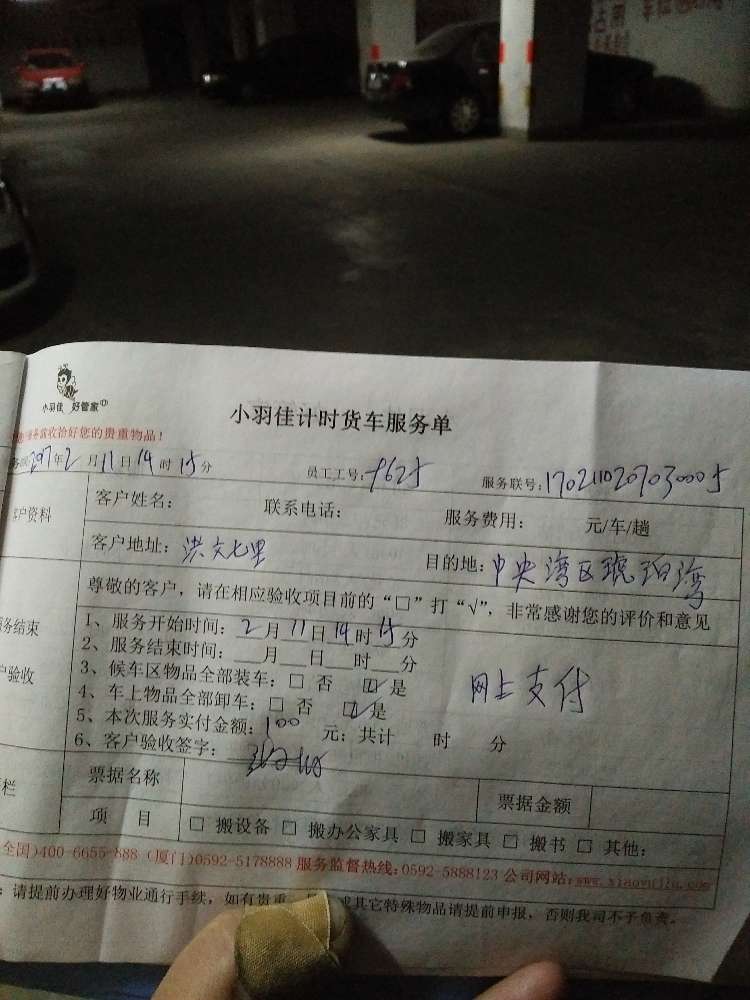 小羽佳 好管家
小羽佳计时货车服务单
服务前请收拾好您的贵重物品！
2017年2月11日14时15分 员工工号:9625 服务联号:1702110207030005
客户资料 客户姓名： 联系电话： 服务费用： 元/车/趟
客户地址：洪文七里 目的地：中央湾区琥珀湾
尊敬的客户，请在相应验收项目前的“□”打“√”，非常感谢您的评价和意见
服务结束
客户验收
1、服务开始时间：2月11日14时15分
2、服务结束时间：__月__日__时__分
3、候车区物品全部装车：□ 否 ☑ 是
4、车上物品全部卸车：□ 否 ☑ 是
网上支付
5、本次服务实付金额：100 元；共计 时 分
6、客户验收签字：
栏 票据名称 票据金额
项 目 □ 搬设备 □ 搬办公家具 □ 搬家具 □ 搬书 □ 其他：
全国)400-6655-888 (厦门)0592-5178888 服务监督热线:0592-5888123 公司网站:www.xiaoyujia.com
：请提前办理好物业通行手续，如有贵重 或其它特殊物品请提前申报，否则我司不予负责。